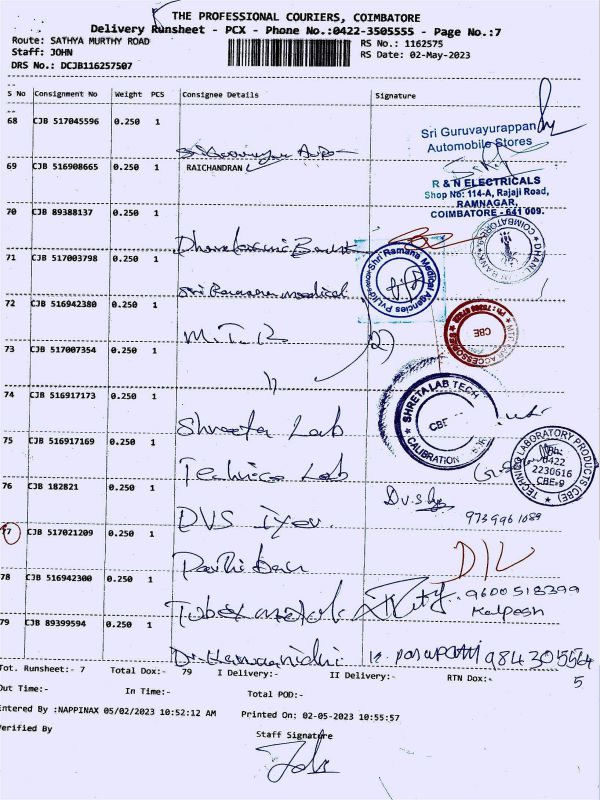 THE PROFESSIONAL COURIERS, COIMBATORE
Delivery Runsheet - PCX - Phone No.:0422-3505555 - Page No.:7
Route: SATHYA MURTHY ROAD
RS No.: 1162575
Staff: JOHN
RS Date: 02-May-2023
DRS No.: DCJB116257507
S No Consignment No Weight PCS Consignee Details Signature
68 CJB 517045596 0.250 1
Sri Guruvayurappan
Automobile Stores
69 CJB 516908665 0.250 1 RAICHANDRAN
R & N ELECTRICALS
Shop No: 114-A, Rajaji Road,
RAMNAGAR,
COIMBATORE - 641 009.
70 CJB 89388137 0.250 1
Dhanlaxmi Bank
71 CJB 517003798 0.250 1
Sri Ramana medical
Shri Ramana Medical Agencies Pvt.
72 CJB 516942380 0.250 1
CBE
73 CJB 517007354 0.250 1
11
74 CJB 516917173 0.250 1
Shreeta Lab
SHRETA LAB TECH
CBE
CALIBRATION
75 CJB 516917169 0.250 1
Technico Lab
TECHNICO LABORATORY PRODUCTS (CBE)
Ph:
0422
2230616
CBE-9
76 CJB 182821 0.250 1
DVS Iyer.
9739961089
77 CJB 517021209 0.250 1
D/L
78 CJB 516942300 0.250 1
9600518399
Kalpesh
79 CJB 89399594 0.250 1
984305564
5
Tot. Runsheet:- 7 Total Dox:- 79 I Delivery:- II Delivery:- RTN Dox:-
Out Time:- In Time:- Total POD:-
Entered By :NAPPINAX 05/02/2023 10:52:12 AM Printed On: 02-05-2023 10:55:57
Verified By Staff Signature